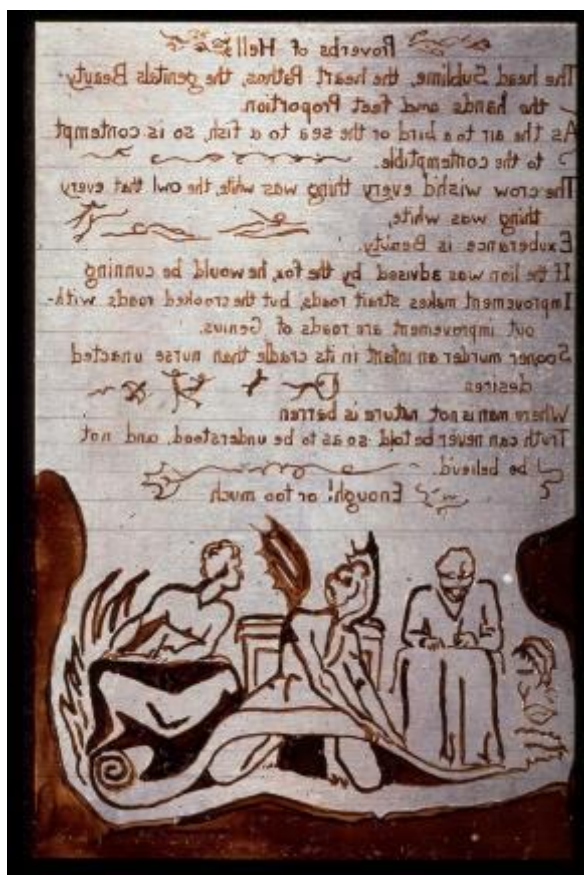 Proverbs of Hell
The head Sublime, the heart Pathos, the genitals Beauty.
the hands and feet Proportion.
As the air to a bird or the sea to a fish, so is contempt
to the contemptible.
The crow wish'd every thing was white, the owl that every
thing was white,
Exuberance is Beauty.
If the lion was advised by the fox, he would be cunning
Improvement makes strait roads, but the crooked roads with-
out improvement are roads of Genius.
Sooner murder an infant in its cradle than nurse unacted
desires
Where man is not nature is barren
Truth can never be told so as to be understood, and not
be believ'd.
Enough! or too much